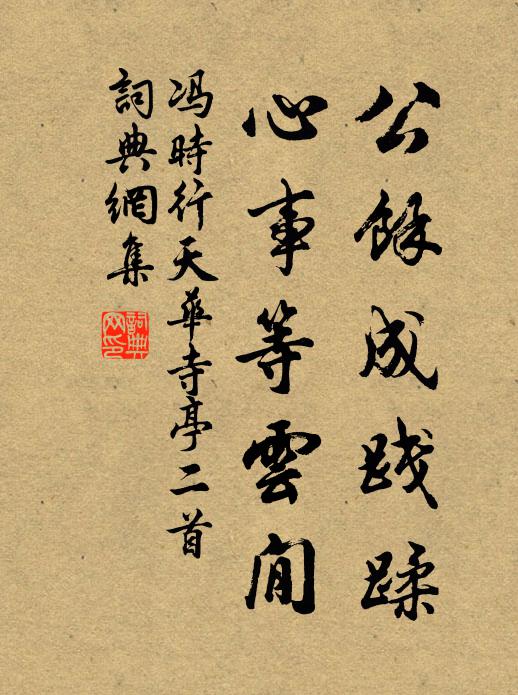 公餘成踐蹂
心事等雲閒
馮時行天華寺亭二首
詞典網集
詞典網印